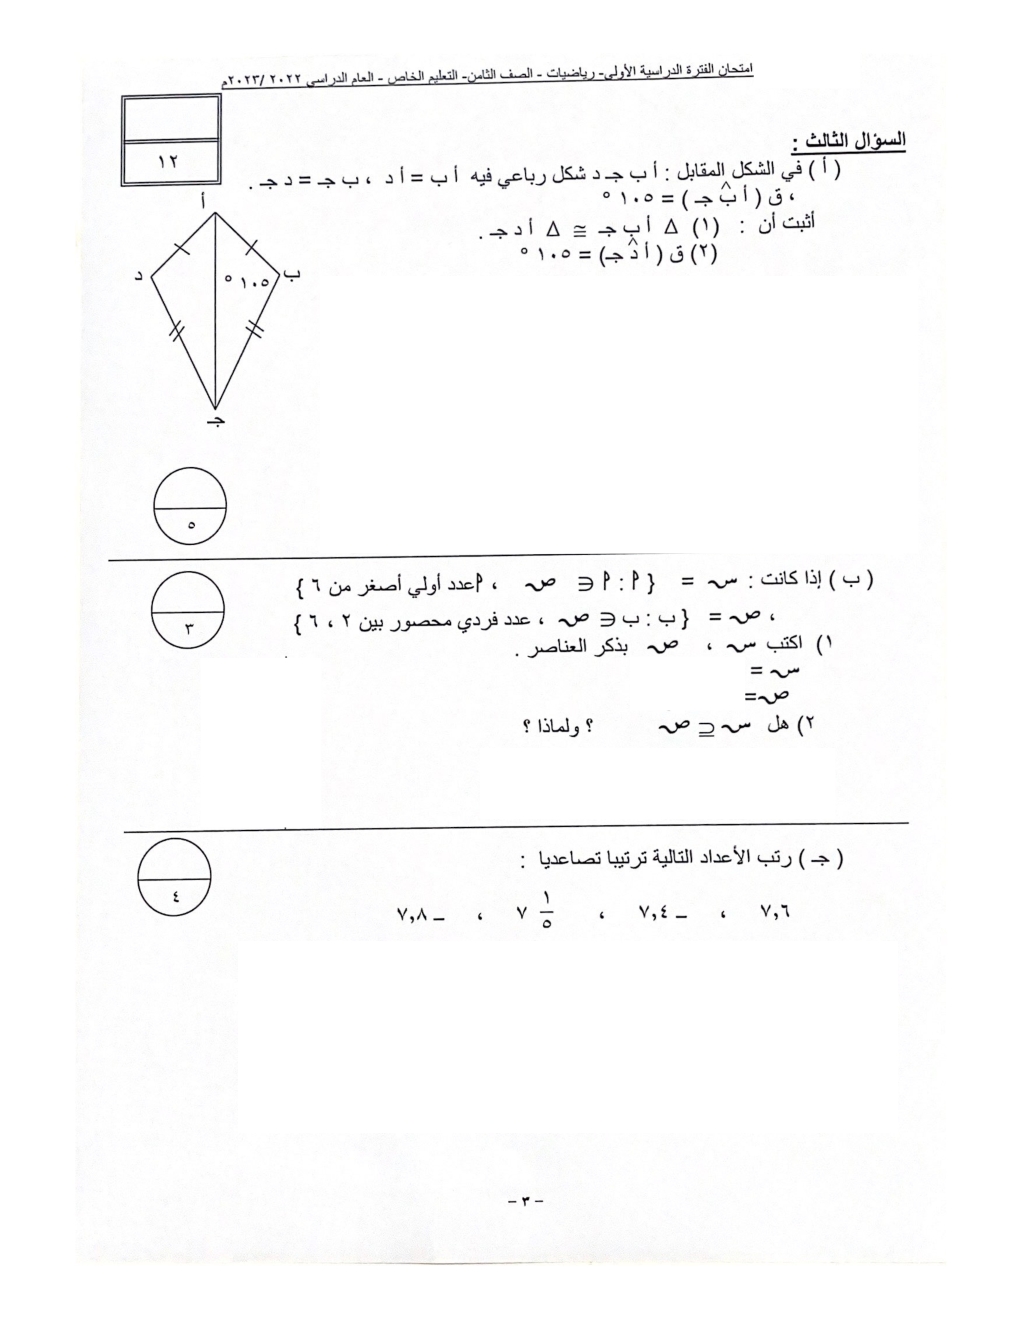 امتحان الفترة الدراسية الأولى- رياضيات - الصف الثامن- التعليم الخاص - العام الدراسي ٢٠٢٢ /٢٠٢٣م
١٢
السؤال الثالث :
( أ ) في الشكل المقابل : أ ب جـ د شكل رباعي فيه أ ب = أ د ، ب جـ = د جـ .
، ق ( أ ب̂ جـ ) = ١٠٥ °
أثبت أن : (١) Δ أ ب جـ ≅ Δ أ د جـ .
(٢) ق ( أ د̂ جـ) = ١٠٥ °
أ
ب
١٠٥ °
د
جـ
٥
( ب ) إذا كانت : س = { ٢ : ٢ ∈ ص ، ٢ عدد أولي أصغر من ٦ }
٣
، ص = { ب : ب ∈ ص ، عدد فردي محصور بين ٢ ، ٦ }
١) اكتب س ، ص بذكر العناصر .
س =
ص=
٢) هل س ⊆ ص ؟ ولماذا ؟
( جـ ) رتب الأعداد التالية ترتيبا تصاعديا :
٤
٧,٦ ، – ٧,٤ ، ١/٥ ٧ ، – ٧,٨
– ٣ –